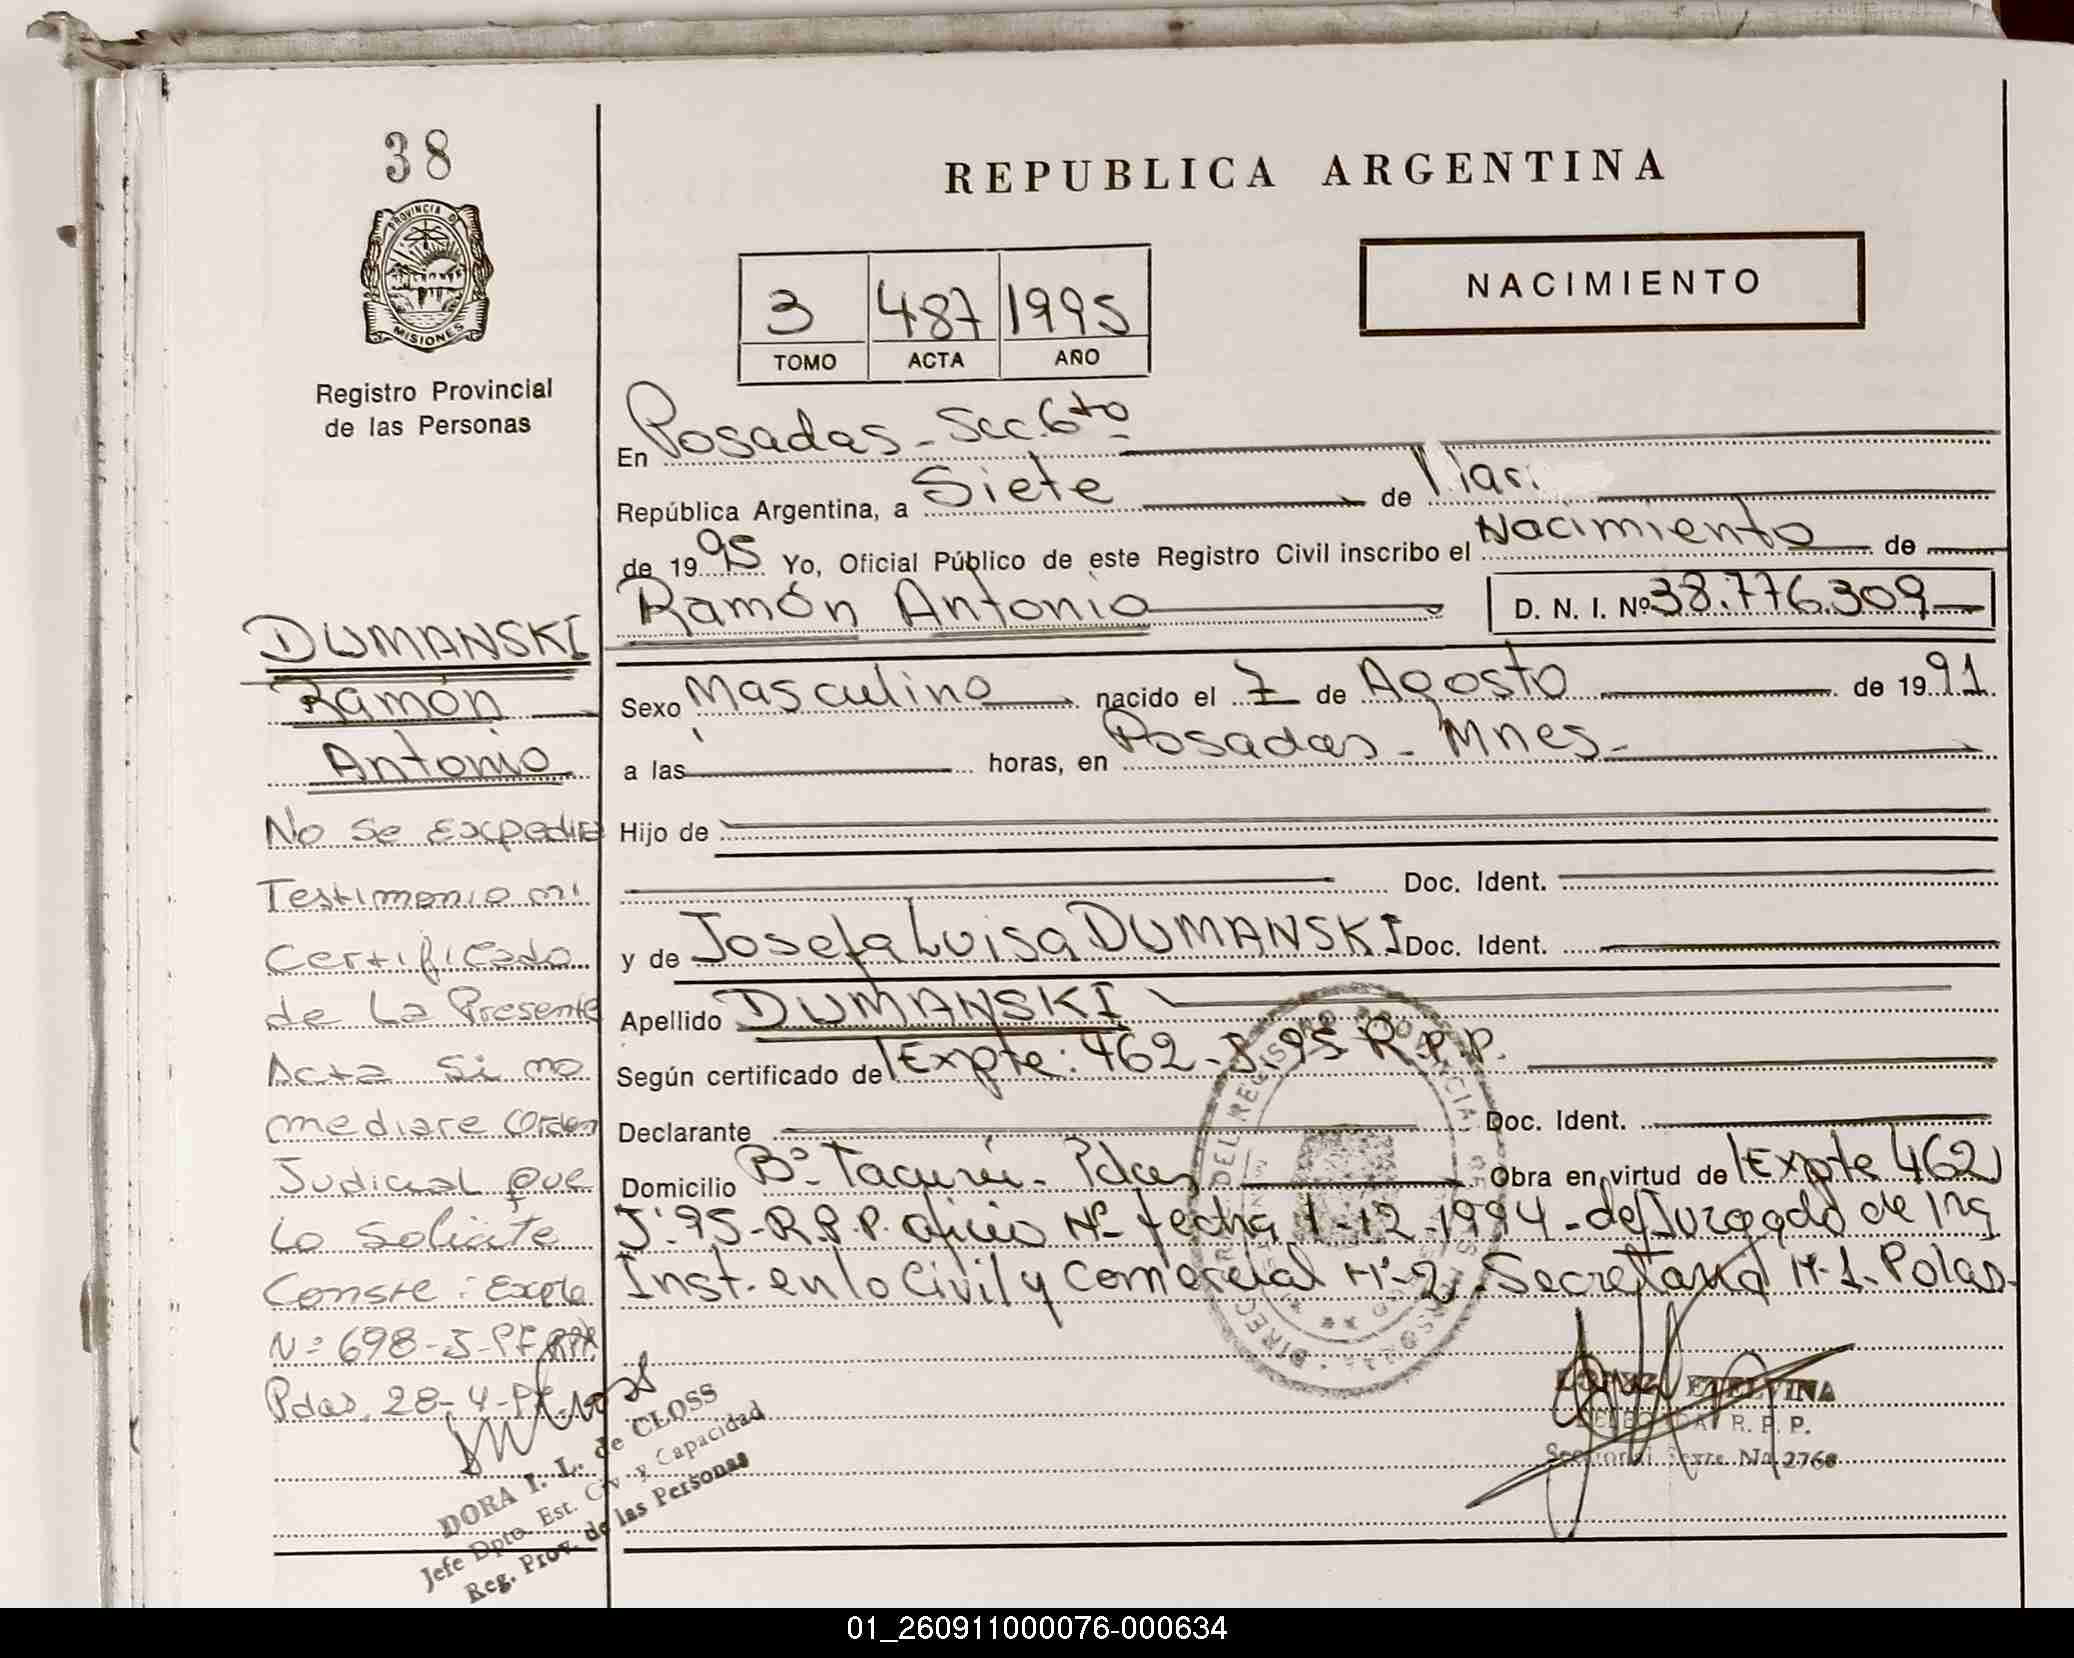 38
PROVINCIA D
MISIONES
Registro Provincial
de las Personas
REPUBLICA ARGENTINA
NACIMIENTO
3 487 1995
TOMO ACTA AÑO
En Posadas - Secc. 6to
República Argentina, a Siete de
de 1995 Yo, Oficial Público de este Registro Civil inscribo el Nacimiento de
Ramón Antonio D. N. I. Nº 38.776.309
Sexo Masculino nacido el 7 de Agosto de 1991
a las horas, en Posadas - Mnes -
Hijo de
Doc. Ident.
y de Josefa Luisa DUMANSKI Doc. Ident.
Apellido DUMANSKI
Según certificado de Expte: 462 - J - 95 R.P.P.
Declarante Doc. Ident.
Domicilio Bº Tacurú - Pdas Obra en virtud de Expte 462
J-95-R.P.P. oficio Nº fecha 1-12-1994 - del Juzgado de
Inst. en lo Civil y Comercial Nº 2 - Secretaria Nº 1 -
DUMANSKI
Ramón
Antonio
No se expedira
Testimonio ni
Certificado
de La Presente
Acta si no
mediare Orden
Judicial que
Lo Solicite
Conste: Expte
Nº 698-J-
Pdas. 28-4-
DORA I. L. de CLOSS
Jefe Dpto. Est. Civ. y Capacidad
Reg. Prov. de las Personas
ETELVINA
DELEGADA R. P. P.
Seccional Sexta Na. 2768
01_260911000076-000634